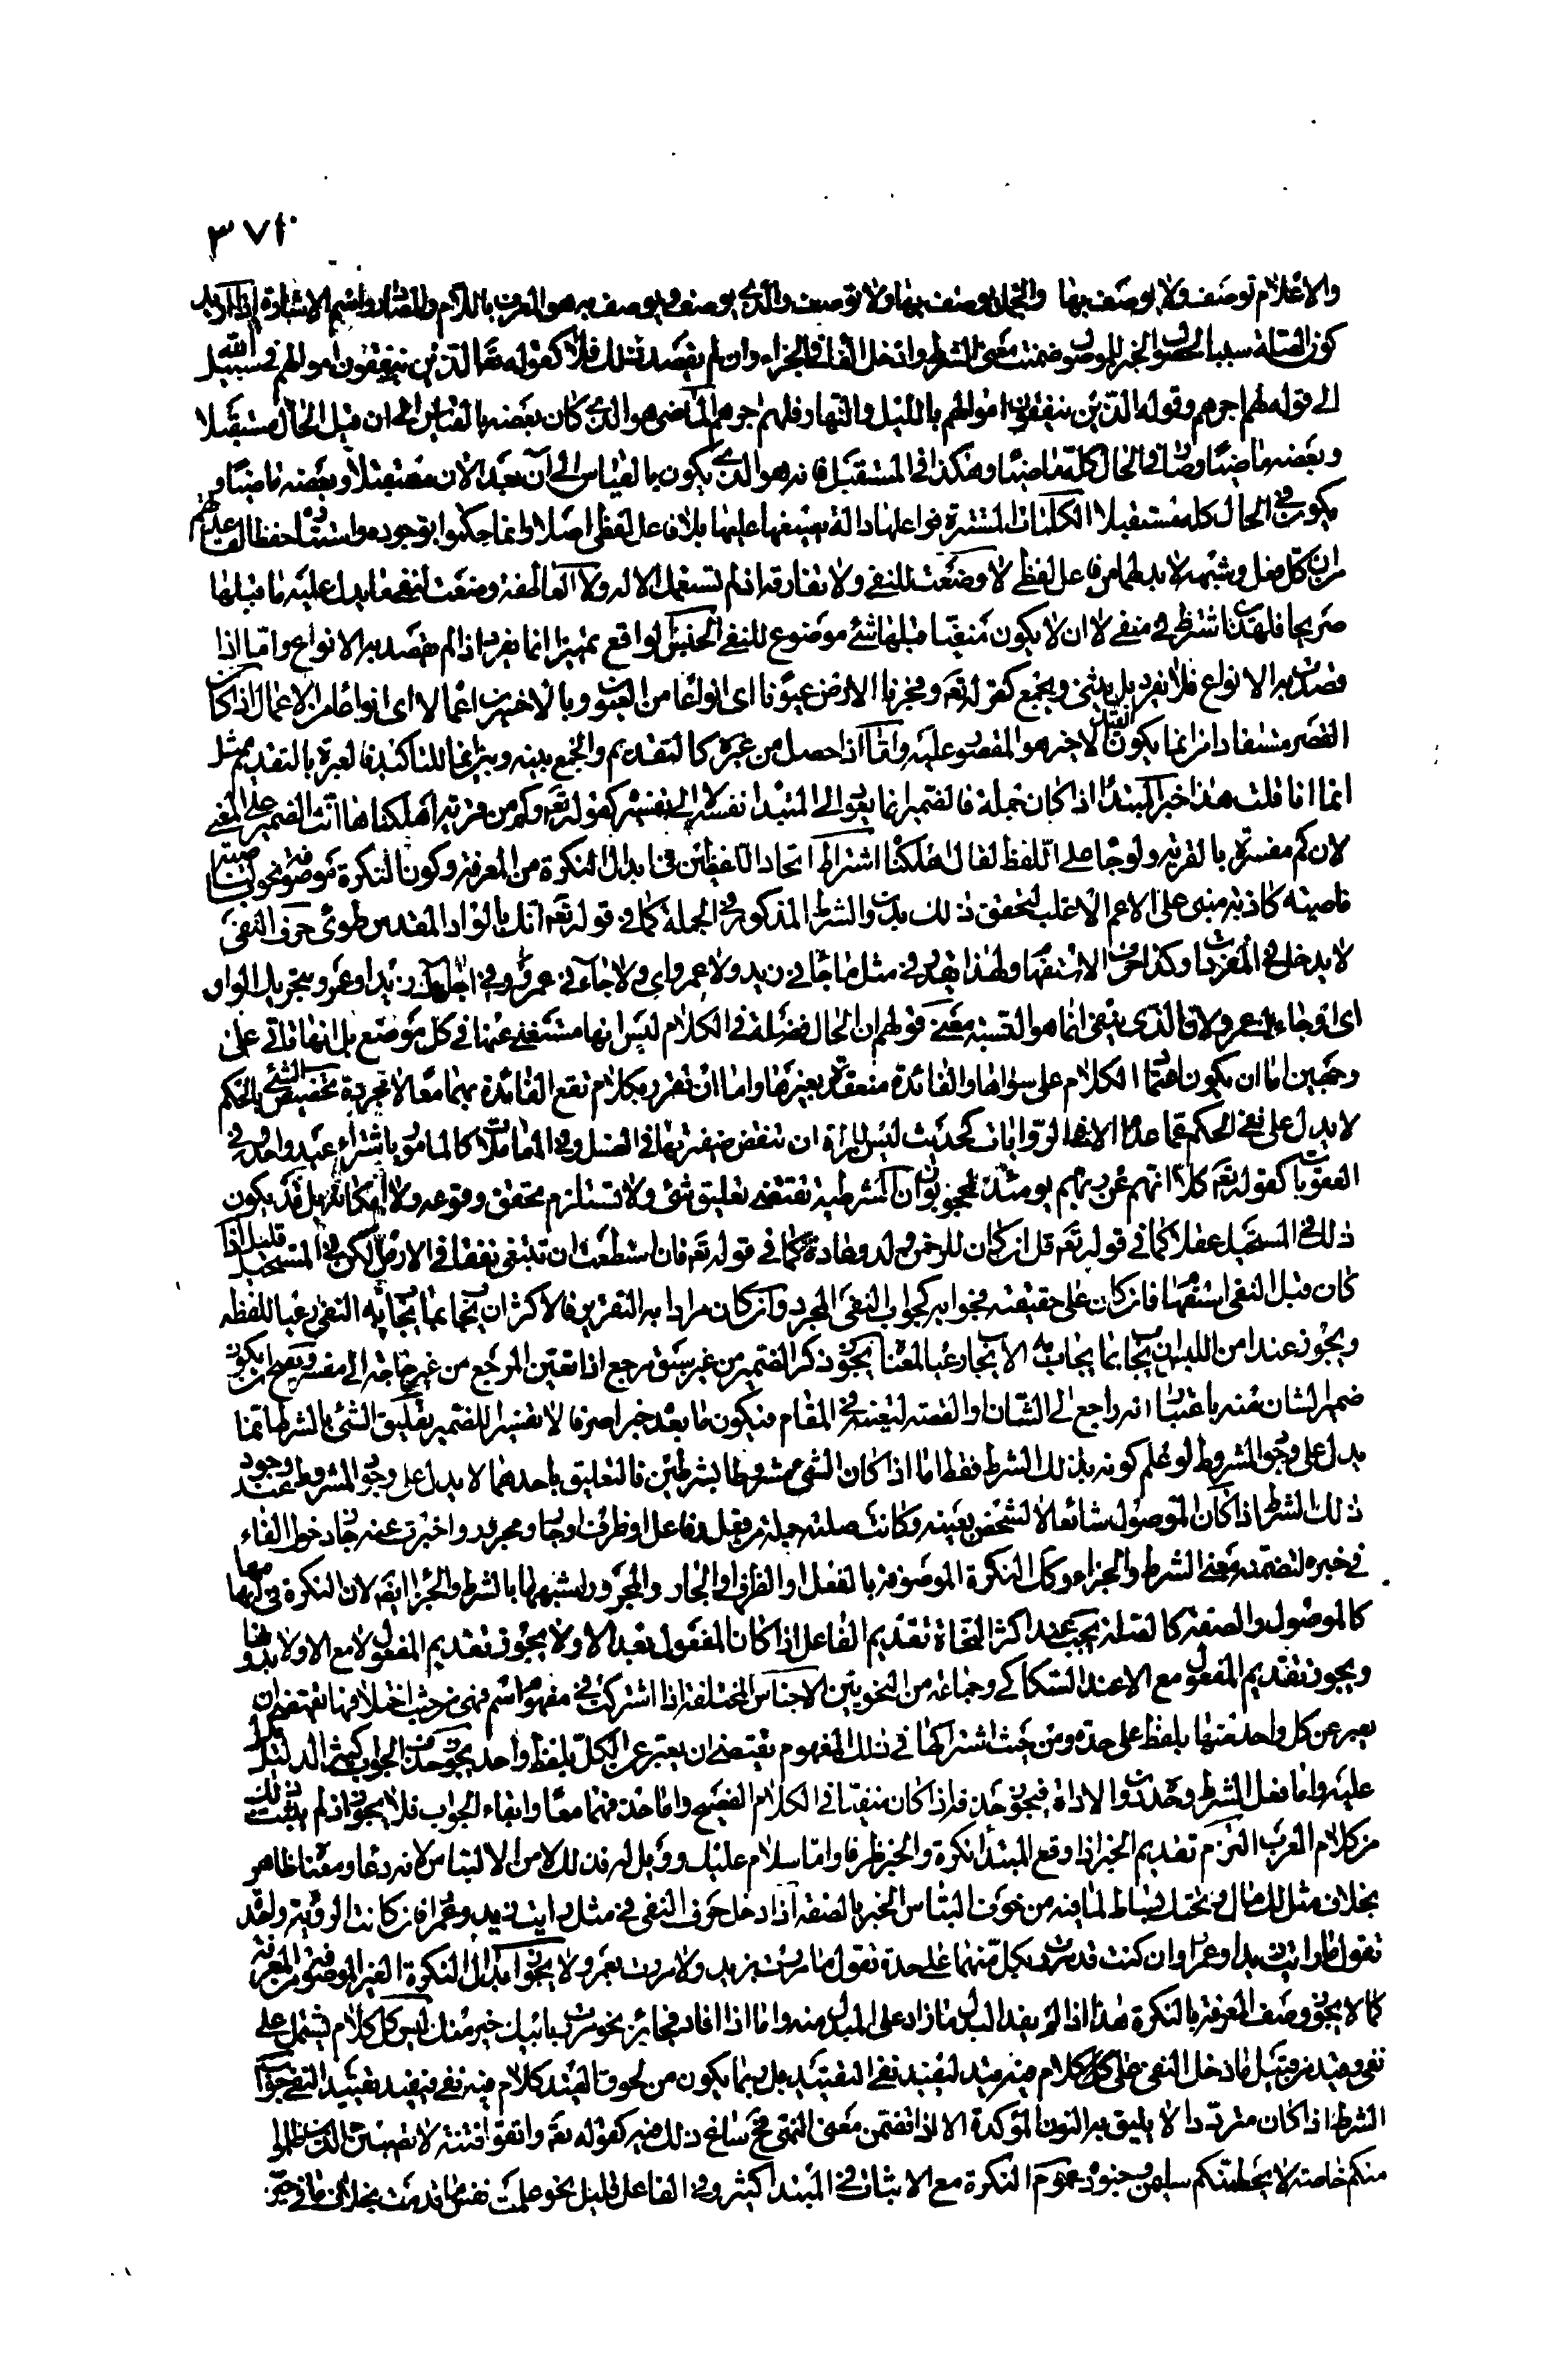 ٣٧١
والاعلام توصف ولا يوصف بها والجمل يوصف بها ولا توصف والذى يوصف ويوصف به هو المعرف باللام والمضاف واسم الاشارة اذا اريد
كون الصلة سببا لحصول الخبر للموصول ضمنت معنى الشرط وادخل الفا فى الجزاء وان لم يقصد ذلك فلا كقوله تعا الذين ينفقون اموالهم فى سبيل الله
الى قوله لهم اجرهم وقوله الذين ينفقون اموالهم بالليل والنهار فلهم اجرهم الماضى هو الذى كان بعضه بالقياس الى ان قبل الحال مستقبلا
وبعضه ماضيا وصار فى الحال كله ماضيا وهكذا فى المستقبل فانه هو الذى يكون بالقياس الى آن بعد الآن مستقبلا وبعضه ماضيا و
يكون فى الحال كله مستقبلا الكلمات المستترة فواعلها دالة بصيغها عليها بلا فاعل لفظى اصلا وانما حكموا بوجوده واستتاره حفظا لقاعدتهم
من ان كل فعل وشبهه لا بد لهما من فاعل لفظى لا وضعت للنفى ولا تفارقه اذ لم تستعمل الا له ولا العاطفة وضعت لنفى ما يدل عليه ما قبلها
صريحا فلهذا اشترط فى منفى لا ان لا يكون منفيا قبلها شئ موضوع للنفى الجنس الواقع تميزا انما يفرد اذا لم يقصد به الانواع واما اذا
قصدت به الانواع فلا يفرد بل يثنى ويجمع كقوله تعم وفجرنا الارض عيونا اى انواعا من العيون وبالاخسرين اعمالا اى انواعا من الاعمال اذا كان
القصر مستفادا من انما يكون القيد الاخير هو المقصور عليه واما اذا حصل من غيره كالتقديم والجمع بينه وبين انما للتاكيد فالعبرة بالتقديم مثل
انما انا قلت هذا خبر المبتدا اذا كان جملة فالضمير انما يعود الى المبتدا نفسه لا الى تفسيره كقوله تعم وكم من قرية اهلكناها انث الضمير على المعنى
لان كم مفسرة بالقرية ولو جا على اللفظ لقال اهلكنا اشتراط اتحاد اللفظين فى ابدال النكرة من المعرفة وكون النكرة موصوفة نحو بالناصية
ناصية كاذبة مبنى على الاعم الاغلب لتحقق ذلك بدون الشرط المذكور فى الجملة كما فى قوله تعم انك بالواد المقدس طوى حرف النفى
لا يدخل فى المفردات وكذا حرف الاستفهام ولهذا يقدر فى مثل ما جائنى زيد ولا عمرو اى ولا جاءنى عمرو وفى اجاءك زيد او عمرو بتحريك الواو
اى او جاءك عمرو لان الذى ينفى انما هو النسبة معنى قولهم ان الحال فضلة فى الكلام ليس انها مستغنى عنها فى كل موضع بل انها تاتى على
وجهين اما ان يكون اعتماد الكلام على سواها والفائدة منعقدة بغيرها واما ان تقترن بكلام تقع الفائدة بهما معا لا مجردة تخصيص الشئ بالحكم
لا يدل على نفى الحكم عما عداه الا فى الروايات كحديث ليس للمراة ان تنقض ضفيرتها فى الغسل وفى المعاملات كالمامور باشتراء عبد واحد وفى
العقوبات كقوله تعم كلا انهم عن ربهم يومئذ لمحجوبون ان الشرطية تقتضى تعليق شئ ولا تستلزم تحقق وقوعه ولا امكانه بل قد يكون
ذلك فى المستحيل عقلا كما فى قوله تعم قل ان كان للرحمن ولد وعادة كما فى قوله تعم فان استطعت ان تبتغى نفقا فى الارض لكن فى المستحيل قليل اذا
كان قبل النفى استفهام فان كان على حقيقته فجوابه كجواب النفى المجرد وان كان مرادا به التقرير فالاكثر ان يجاب بما يجاب به النفى رعيا للفظه
ويجوز عند امن اللبس ان يجاب بما يجاب به الايجاب رعيا لمعناه يجوز ذكر الضمير من غير سبق مرجع اذا تعين المرجع من غير حاجة الى مفسر ويصح ان يكون
ضمير الشان منه باعتبار انه راجع الى الشان او القصة لتعينه فى المقام فيكون ما بعده خبرا صرفا لا تفسيرا للضمير تعليق الشئ بالشرط انما
يدل على وجود المشروط لو علم كونه بذلك الشرط فقط اما اذا كان الشئ مشروطا بشرطين فالتعليق باحدهما لا يدل على وجود المشروط عند وجود
ذلك الشرط اذا كان الموصول شائعا لا لشخص بعينه وكانت صلته جملة من فعل وفاعل او ظرف او جار ومجرور واخبرت عنه جاز دخول الفاء
فى خبره لتضمنه معنى الشرط والجزاء وكذا النكرة الموصوفة بالفعل او الظرف او الجار والمجرور لشبهها بالشرط والجزا ايضا لان النكرة فى ابهامها
كالموصول والصفة كالصلة يجب عند اكثر النحاة تقديم الفاعل اذا كان المفعول بعد الا ولا يجوز تقديم المفعول لا مع الا ولا بدونها
ويجوز تقديم المفعول مع الا عند السكاكى وجماعة من النحويين الاجناس المختلفة اذا اشتركت فى مفهوم اسم فهى من حيث اختلافها تقتضى ان
يعبر عن كل واحدة منها بلفظ على حدة ومن حيث اشتراكها فى ذلك المفهوم يقتضى ان يعبر عن الكل بلفظ واحد يجوز حذف الجواب كثيرا لدليل يدل
عليه واما فعل الشرط وحده دون الاداة فيجوز حذفه اذا كان منفيا فى الكلام الفصيح واما حذفهما معا وابقاء الجواب فلا يجوز اذ لم يثبت ذلك
من كلام العرب التزم تقديم الخبر اذا وقع المبتدا نكرة والخبر ظرفا واما سلام عليك وويل له فذلك لامن الالتباس لانه دعا ومعناه ظاهر
بخلاف مثل لك مال وتحتك بساط لما فيه من خوف التباس الخبر بالصفة اذا دخل حرف النفى فى مثل رايت زيدا وعمرا فان كانت الرؤية واحدة
تقول ما رايت زيدا وعمرا وان كنت قد مررت بكل منهما على حدة تقول ما مررت بزيد ولا مررت بعمرو لا يجوز ابدال النكرة الغير الموصوفة من المعرفة
كما لا يجوز وصف المعرفة بالنكرة هذا اذا لم يفد البدل ما زاد على المبدل منه واما اذا افاد فجائز نحو مررت بابيك خير منك ليس كل كلام يشتمل على
نفى وقيد من قبيل ما دخل النفى على كل كلام فيه قيد ليفيد نفى التقييد بل ربما يكون من لحوق القيد كلام فيه نفى فيفيد تقييد النفى جواب
الشرط اذا كان مترددا لا يليق به النون المؤكدة الا اذا تضمن معنى النهى فح ساغ ذلك فيه كقوله تعم واتقوا فتنة لا تصيبن الذين ظلموا
منكم خاصة لا يحطمنكم سليمن وجنوده عموم النكرة مع الاثبات فى المبتدا كثير وفى الفاعل قليل نحو علمت نفس ما قدمت بخلاف ما فى حيز